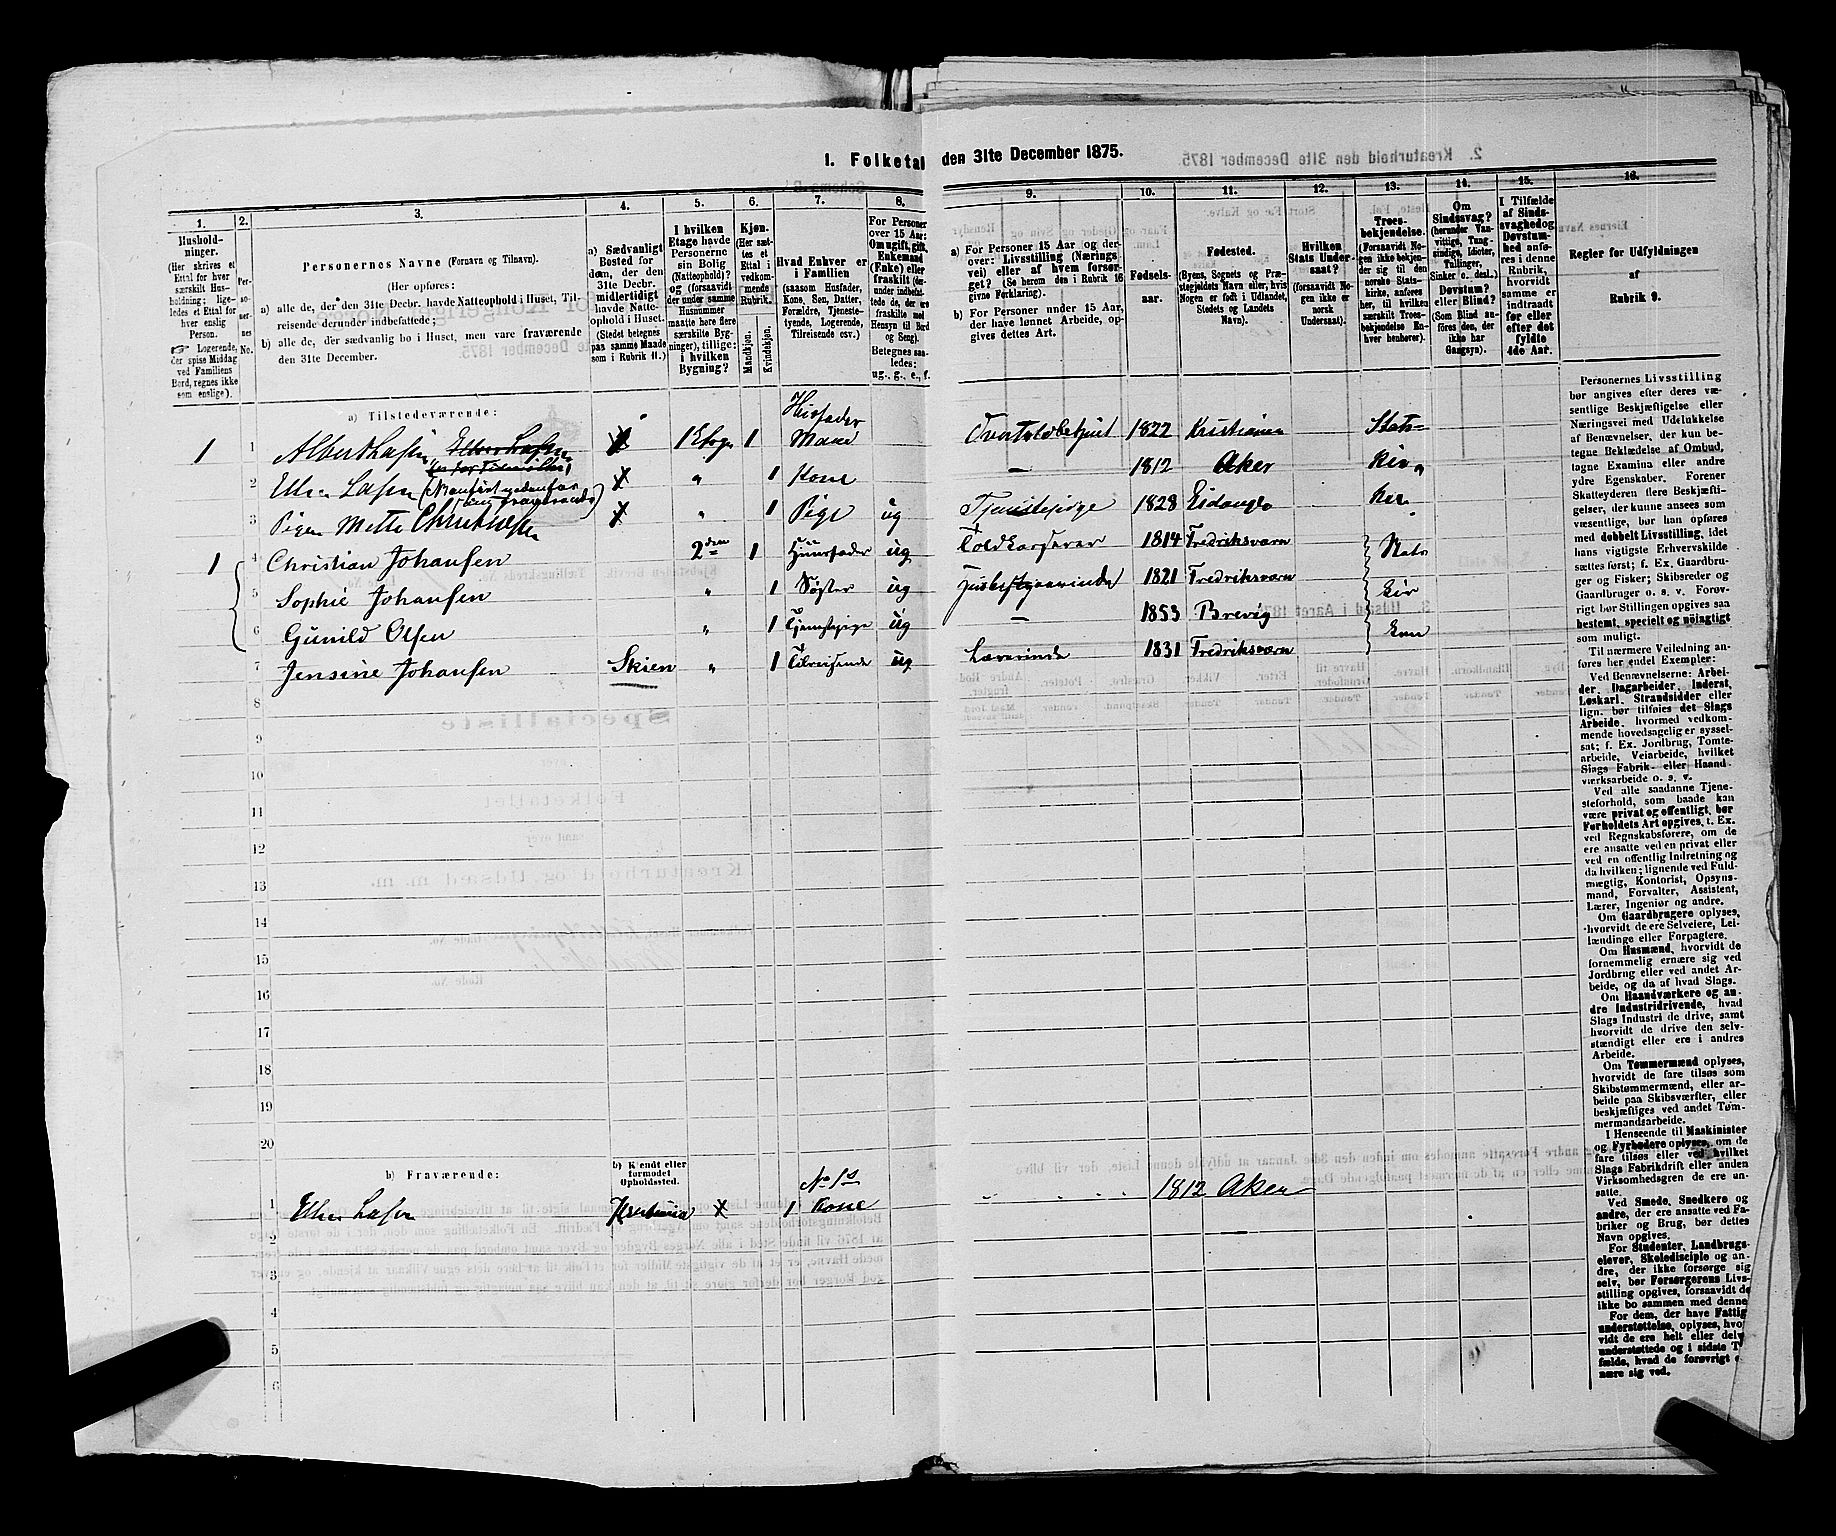 1. Folketal den 31te December 1875.
1. 2. 3. 4. 5. 6. 7. 8. 9. 10. 11. 12. 13. 14. 15. 16.
Hushold-
ninger.
(Her skrives et
Ettal for hver
særskilt Hus-
holdning; lige-
ledes et Ettal for
hver enslig
Person.
Logerende,
der spise Middag
ved Familiens
Bord, regnes ikke
som enslige).
Per-
so-
ner-
nes
No.
Personernes Navne (Fornavn og Tilnavn).
(Her opføres:
a) alle de, der den 31te Decbr. havde Natteophold i Huset, Til-
reisende derunder indbefattede;
b) alle de, der sædvanlig bo i Huset, men vare fraværende
den 31te December.
a) Sædvanligt
Bosted for
dem, der den
31te Decbr.
midlertidigt
havde Natte-
ophold i Huset.
(Stedet betegnes
paa samme Maade
som i Rubrik 11.)
I hvilken
Etage havde
Personerne
sin Bolig
(Natteophold)?
og (forsaavidt
der under samme
Husnummer
maatte høre flere
særskilte Byg-
ninger), tillige:
i hvilken
Bygning?
Kjøn.
(Her sæt-
tes et
Ettal i
vedkom-
mende
Rubrik.
Mandkjøn.
Kvindekjøn.
Hvad Enhver er
i Familien
(saasom Husfader,
Kone, Søn, Datter,
Forældre, Tjeneste-
tyende, Logerende,
Tilreisende osv.)
For Personer
over 15 Aar:
Om ugift, gift,
Enkemand
(Enke) eller
fraskilt
Hensyn til Bord
og Seng).
Betegnes saa-
ledes:
ug., g., e., f.
a) For Personer 15 Aar og der-
over: Livsstilling (Nærings-
vei) eller af hvem forsør-
get? (Se herom den i Rubrik 16
givne Forklaring).
b) For Personer under 15 Aar,
der have lønnet Arbeide, op-
gives dettes Art.
Fødsels-
aar.
Fødested.
(Byens, Sognets og Præ-
stegjeldets Navn eller, hvis
Nogen er født i Udlandet,
Stedets og Landets
Navn).
Hvilken
Stats Under-
saat?
(forsaavidt No-
gen ikke er
norsk
Undersaat).
Troes-
bekjendelse.
(Forsaavidt No-
gen ikke bekjen-
der sig til den
norske Stats-
kirke, anføres
her, til hvilken
særskilt Troes-
bekjendelse En-
hver henhører).
Om
Sindssvag?
(herunder Van-
vittige, Tung-
sindige, Idioter,
Tullinger,
Sinker o. desl.)
Døvstum?
eller Blind?
(Som Blind an-
føres den, der
ikke har
Gangsyn).
I Tilfælde
af Sinds-
svaghed og
Døvstum-
hed anfø-
res i denne
Rubrik,
hvorvidt
samme er
indtraadt
før eller
efter det
fyldte
4de Aar.
Regler for Udfyldningen
af
Rubrik 9.
a) Tilstedeværende:
1 1 Albert Lassen 1 Etage 1 Husfader Mand 1822 Kristiania Stats-
2 Ellen Lassen X " 1 Kone — 1812 Aker Kir
3 Pigen Mette X " 1 Pige ug Tjenestepige 1828 Eidanger
1 4 Christian Johansen 2den 1 Huusfader ug 1814 Fredriksværn Stats
5 Sophie Johansen 1 Søster ug 1821 Fredriksværn
6 Gunild Olsen " 1 Tjenstpige ug — 1853 Brevig
7 Jensine Johansen Skien " 1 Tilreisende ug Lærerinde 1831 Fredriksværn
8
9
10
11
12
13
14
15
16
17
18
19
20
b) Fraværende:
b) Kjendt eller
formodet
Opholdssted.
No 1
1 Ellen Lassen X 1 Kone 1812 Aker
2
3
4
5
6
Personernes Livsstilling
bør angives efter deres væ-
sentlige Beskjæftigelse eller
Næringsvei med Udelukkelse
af Benævnelser, der kun be-
tegne Beklædelse af Ombud,
tagne Examina eller andre
ydre Egenskaber. Forener
Skatteyderen flere Beskjæfti-
gelser, der kunne ansees som
væsentlige, bør han opføres
med dobbelt Livsstilling, idet
hans vigtigste Erhvervskilde
sættes først; f. Ex. Gaardbru-
ger og Fisker; Skibsreder og
Gaardbruger o. s. v. Forøv-
rigt bør Stillingen opgives saa
bestemt, specielt og nøiagtigt
som muligt.
Til nærmere Veiledning an-
føres her endel Exempler:
Ved Benævnelserne: Arbei-
der, Dagarbeider, Inderst,
Løskarl, Strandsidder eller
lign. bør tilføies det Slags
Arbeide, hvormed vedkom-
mende hovedsagelig er syssel-
sat; f. Ex. Jordbrug, Tomte-
arbeide, Veiarbeide, hvilket
Slags Fabrik- eller Haand-
værksarbeide o. s. v.
Ved alle saadanne Tjene-
steforhold, som baade kan
være privat og offentligt, bør
Forholdets Art opgives, t. Ex.
ved Regnskabsførere, om de
ere ansatte ved en privat eller
ved en offentlig Indretning og
da hvilken; lignende ved Fuld-
mægtig, Kontorist, Opsyns-
mand, Forvalter, Assistent,
Lærer, Ingeniør og andre.
Om Gaardbrugere oplyses,
hvorvidt de ere Selveiere, Lei-
lændinge eller Forpagtere.
Om Husmænd, hvorvidt de
fornemmelig ernære sig ved
Jordbrug eller ved andet Ar-
beide, og da af hvad Slags.
Om Haandværkere og an-
dre Industridrivende, hvad
Slags Industri de drive, samt
hvorvidt de drive den selv-
stændigt eller ere i andres
Arbeide.
Om Tømmermænd oplyses,
hvorvidt de fare tilsøs som
Skibstømmermænd, eller ar-
beide paa Skibsværfter, eller
beskjæftiges ved andet Tøm-
mermandsarbeide.
I Henseende til Maskinister
og Fyrbødere oplyses, om de
fare tilsøs eller ved hvilket
Slags Fabrikdrift eller anden
Virksomhedsgren de ere an-
satte.
Ved Smede, Snedkere og
andre, der ere ansatte ved Fa-
briker og Brug, bør dettes
Navn opgives.
For Studenter, Landbrugs-
elever, Skoledisciple og an-
dre, der ikke forsørge sig
selv, bør Forsørgerens Livs-
stilling opgives, forsaavidt de
ikke bo sammen med denne
For dem, der have Fattig-
understøttelse, oplyses, hvor-
vidt de ere helt eller
understøttede og i sidste
fælde, hvad de forøvrigt
nære sig ved.